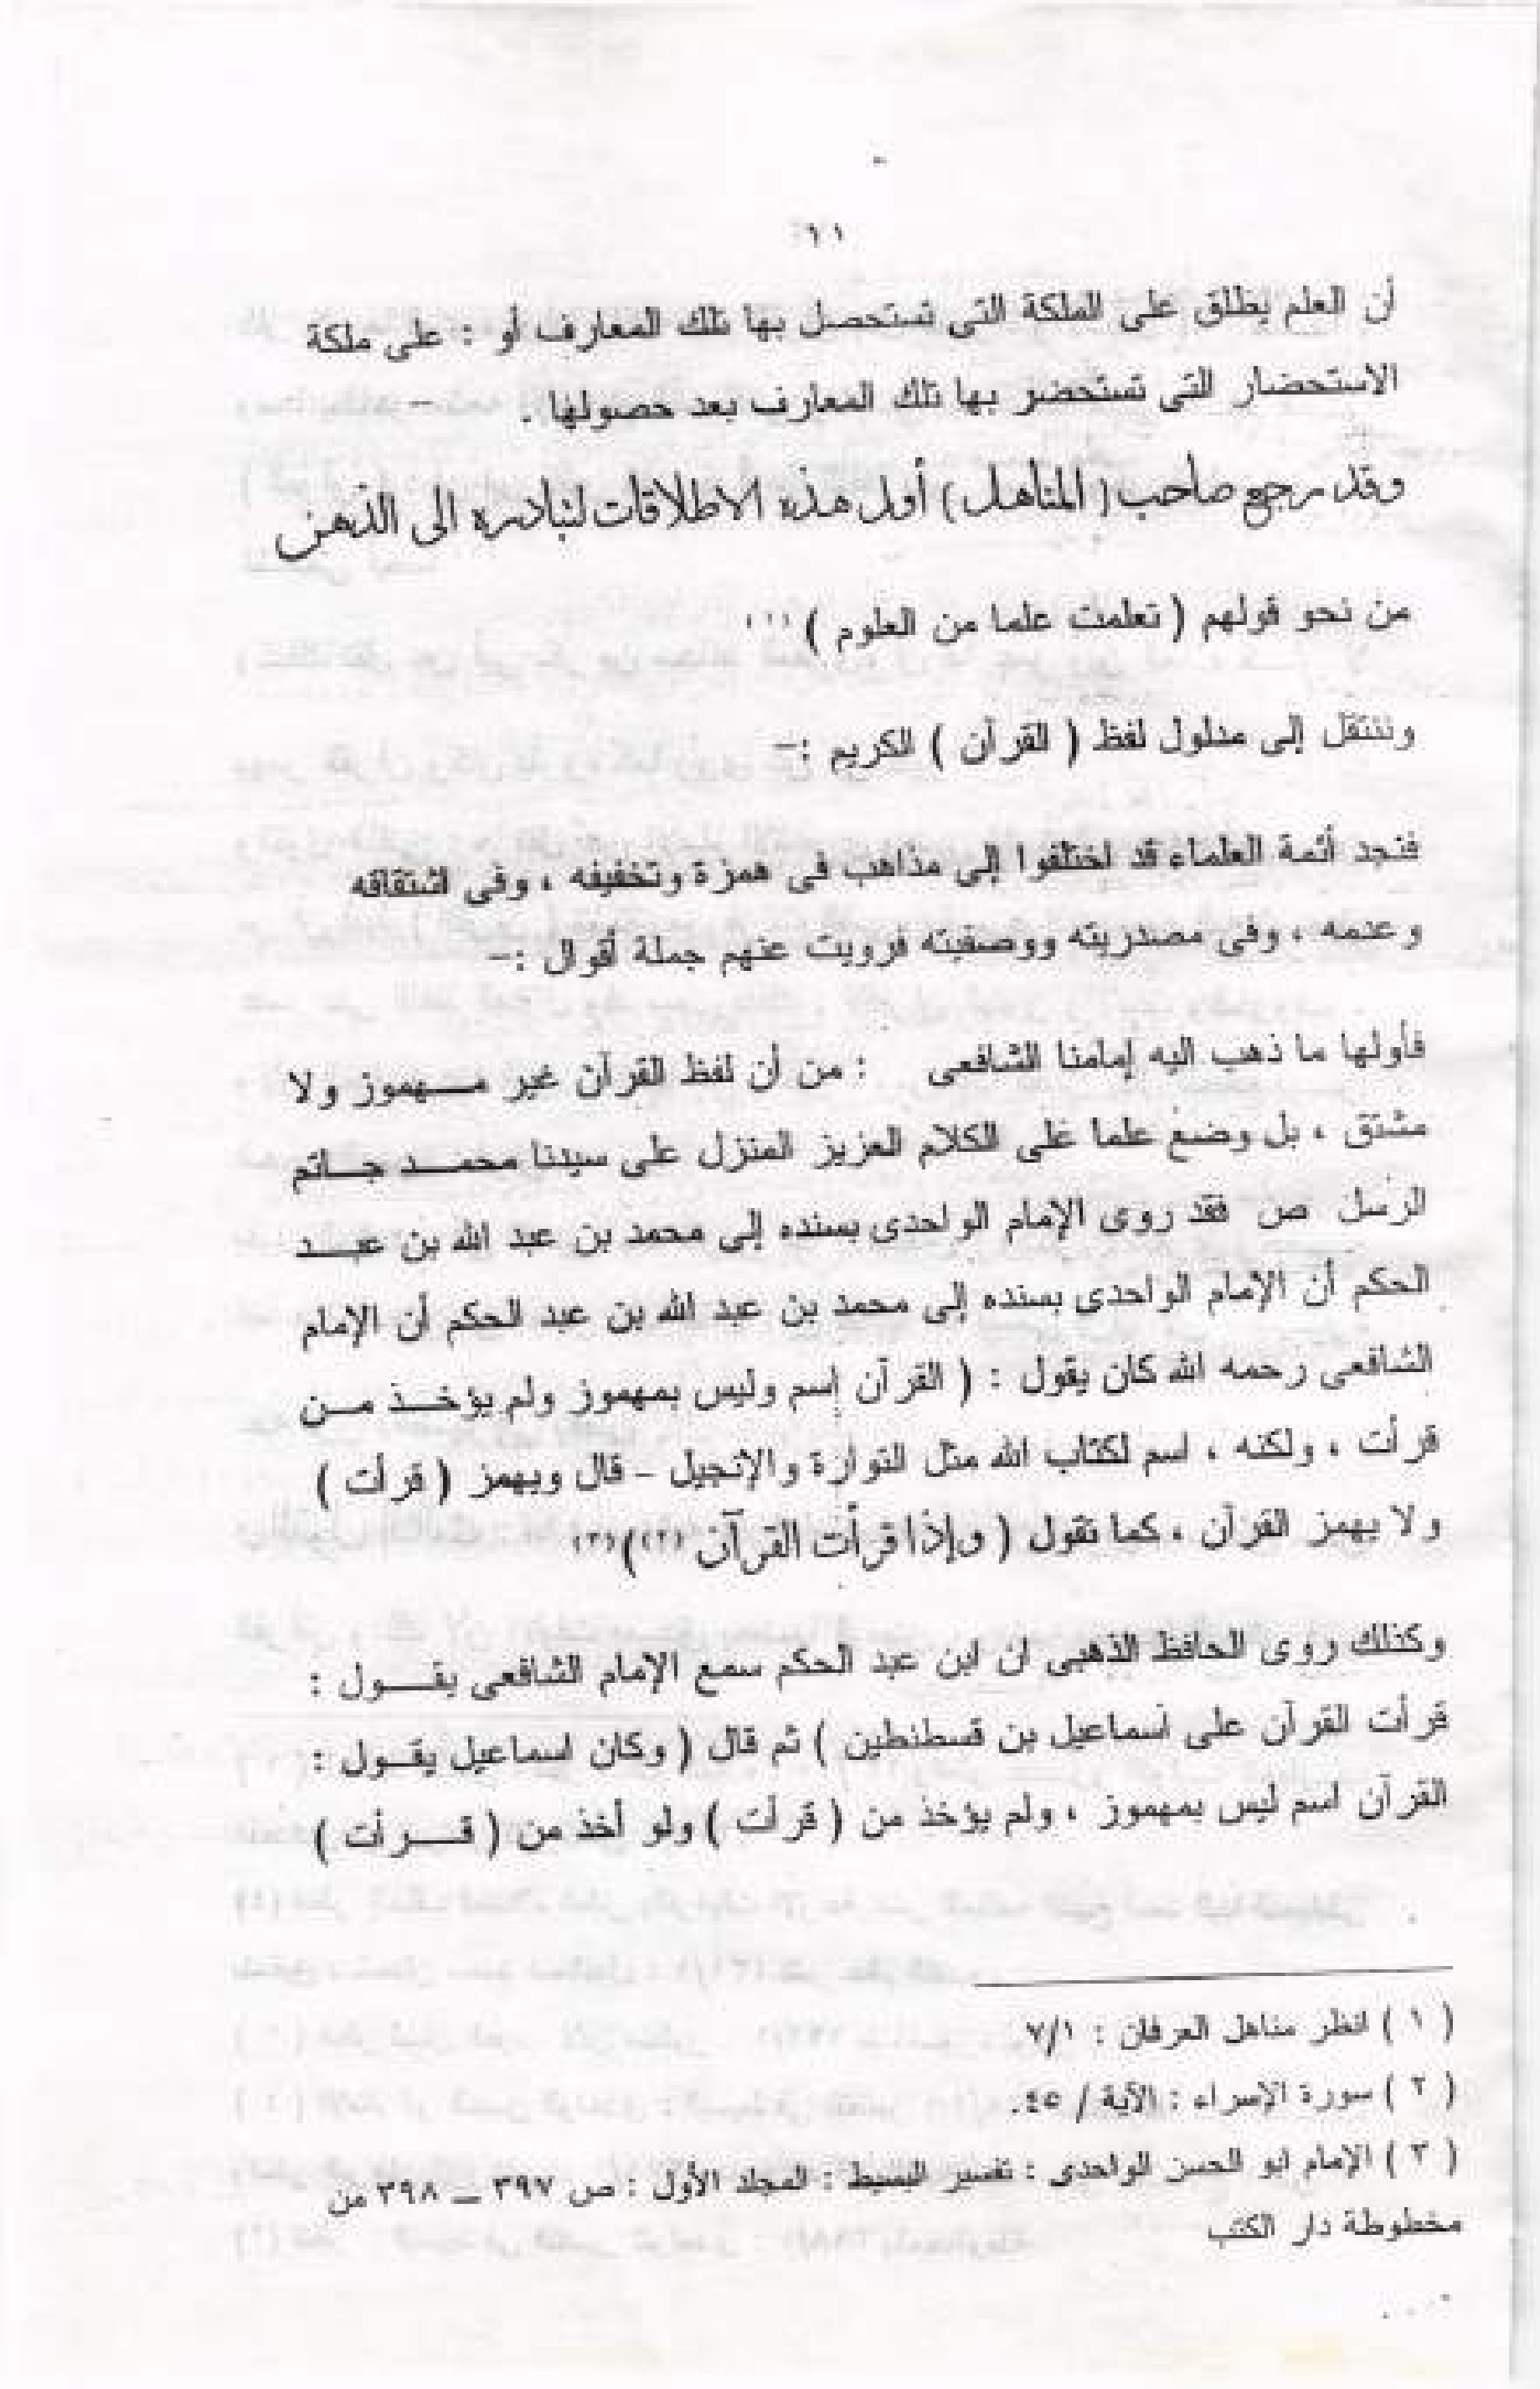 ١١
أن العلم يطلق على الملكة التى تستحصل بها تلك المعارف أو : على ملكة
الاستحضار التى تستحضر بها تلك المعارف بعد حصولها .
وقد رجح صاحب ( المناهل ) أول هذه الاطلاقات لتبادره الى الذهن
من نحو قولهم ( تعلمت علما من العلوم ) (١)
وننتقل إلى مدلول لفظ ( القرآن ) الكريم :–
فنجد أئمة العلماء قد اختلفوا إلى مذاهب فى همزة وتخفيفه ، وفى اشتقاقه
وعدمه ، وفى مصدريته ووصفيته فرويت عنهم جملة أقوال :–
فأولها ما ذهب اليه إمامنا الشافعى : من أن لفظ القرآن غير مـــهموز ولا
مشتق ، بل وضع علما على الكلام العزيز المنزل على سيدنا محمـــد جـــاتم
الرسل ص فقد روى الإمام الواحدى بسنده إلى محمد بن عبد الله بن عبـــد
الحكم أن الإمام الواحدى بسنده إلى محمد بن عبد الله بن عبد الحكم أن الإمام
الشافعى رحمه الله كان يقول : ( القرآن إسم وليس بمهموز ولم يؤخـــذ مـــن
قرأت ، ولكنه ، اسم لكتاب الله مثل التوارة والإنجيل – قال ويهمز ( قرأت )
ولا يهمز القرآن ، كما تقول ( وإذا قرأت القرآن (٢) ) (٣)
وكذلك روى الحافظ الذهبى ان ابن عبد الحكم سمع الإمام الشافعى يقـــول :
قرأت القرآن على اسماعيل بن قسطنطين ) ثم قال ( وكان اسماعيل يقـــول :
القرآن اسم ليس بمهموز ، ولم يؤخذ من ( قرأت ) ولو أخذ من ( قـــرأت )
( ١ ) انظر مناهل العرفان : ٧/١
( ٢ ) سورة الإسراء : الآية / ٤٥.
( ٣ ) الإمام ابو الحسن الواحدى : تفسير البسيط : المجلد الأول : ص ٣٩٧ ــ ٣٩٨ من
مخطوطة دار الكتب